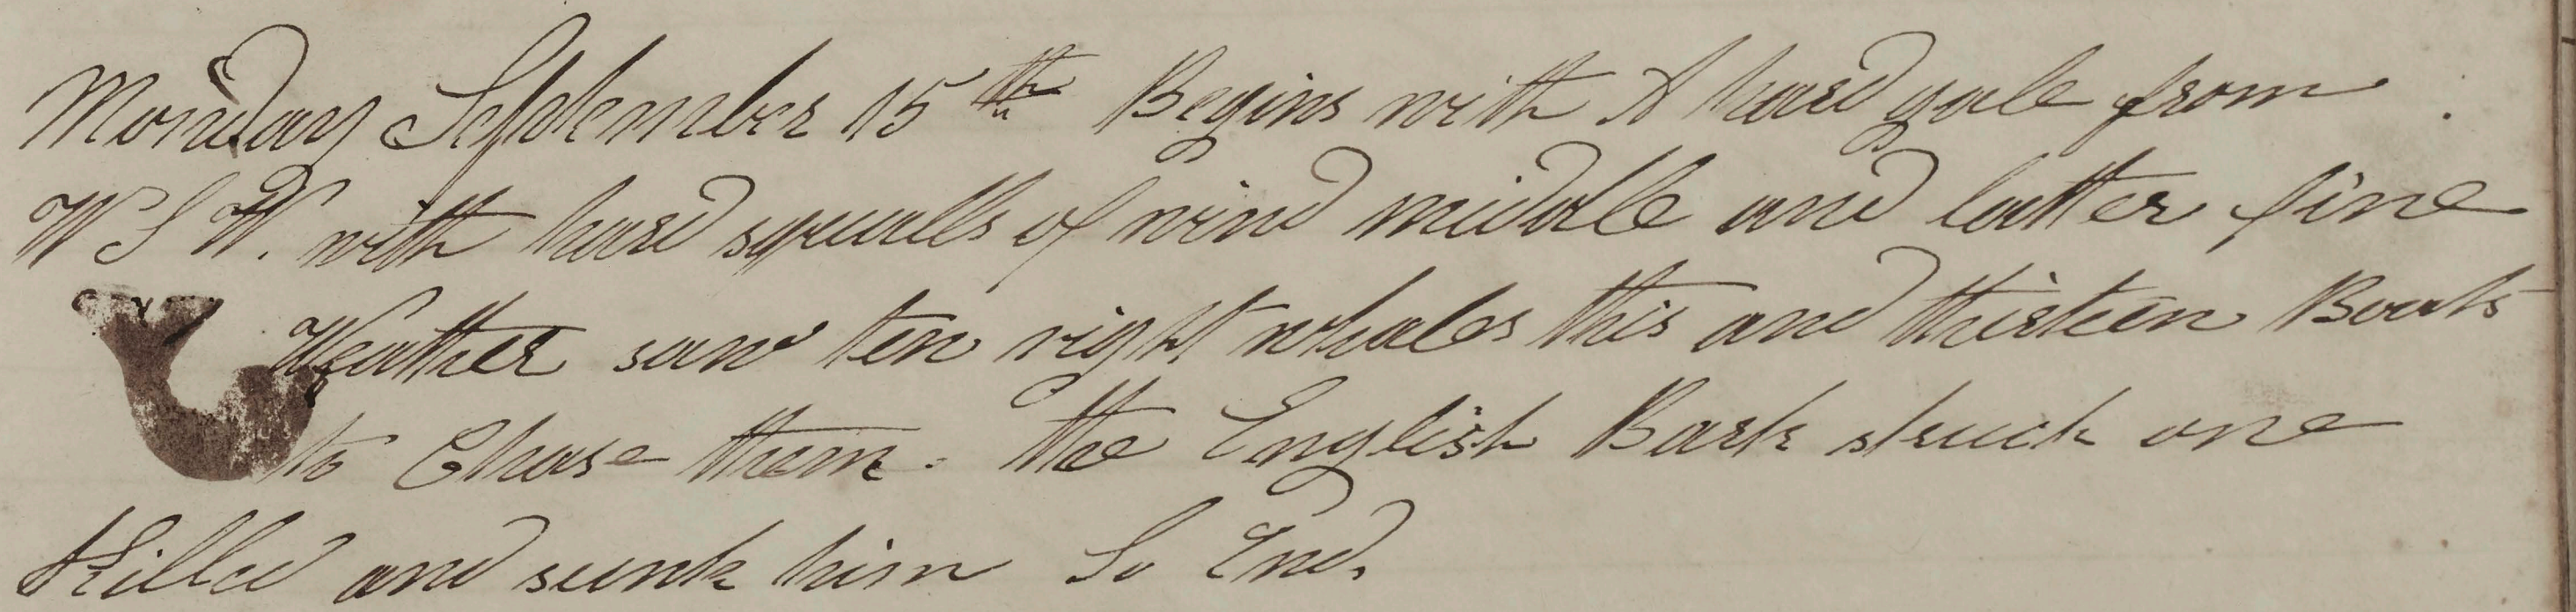 Monday September 15th Begins with A hard gale from
W S W. with hard squalls of wind middle and latter fine
Weather saw ten right whales this and thirteen Boats
to Chase them. the English Bark struck one
Killed and sunk him So End.